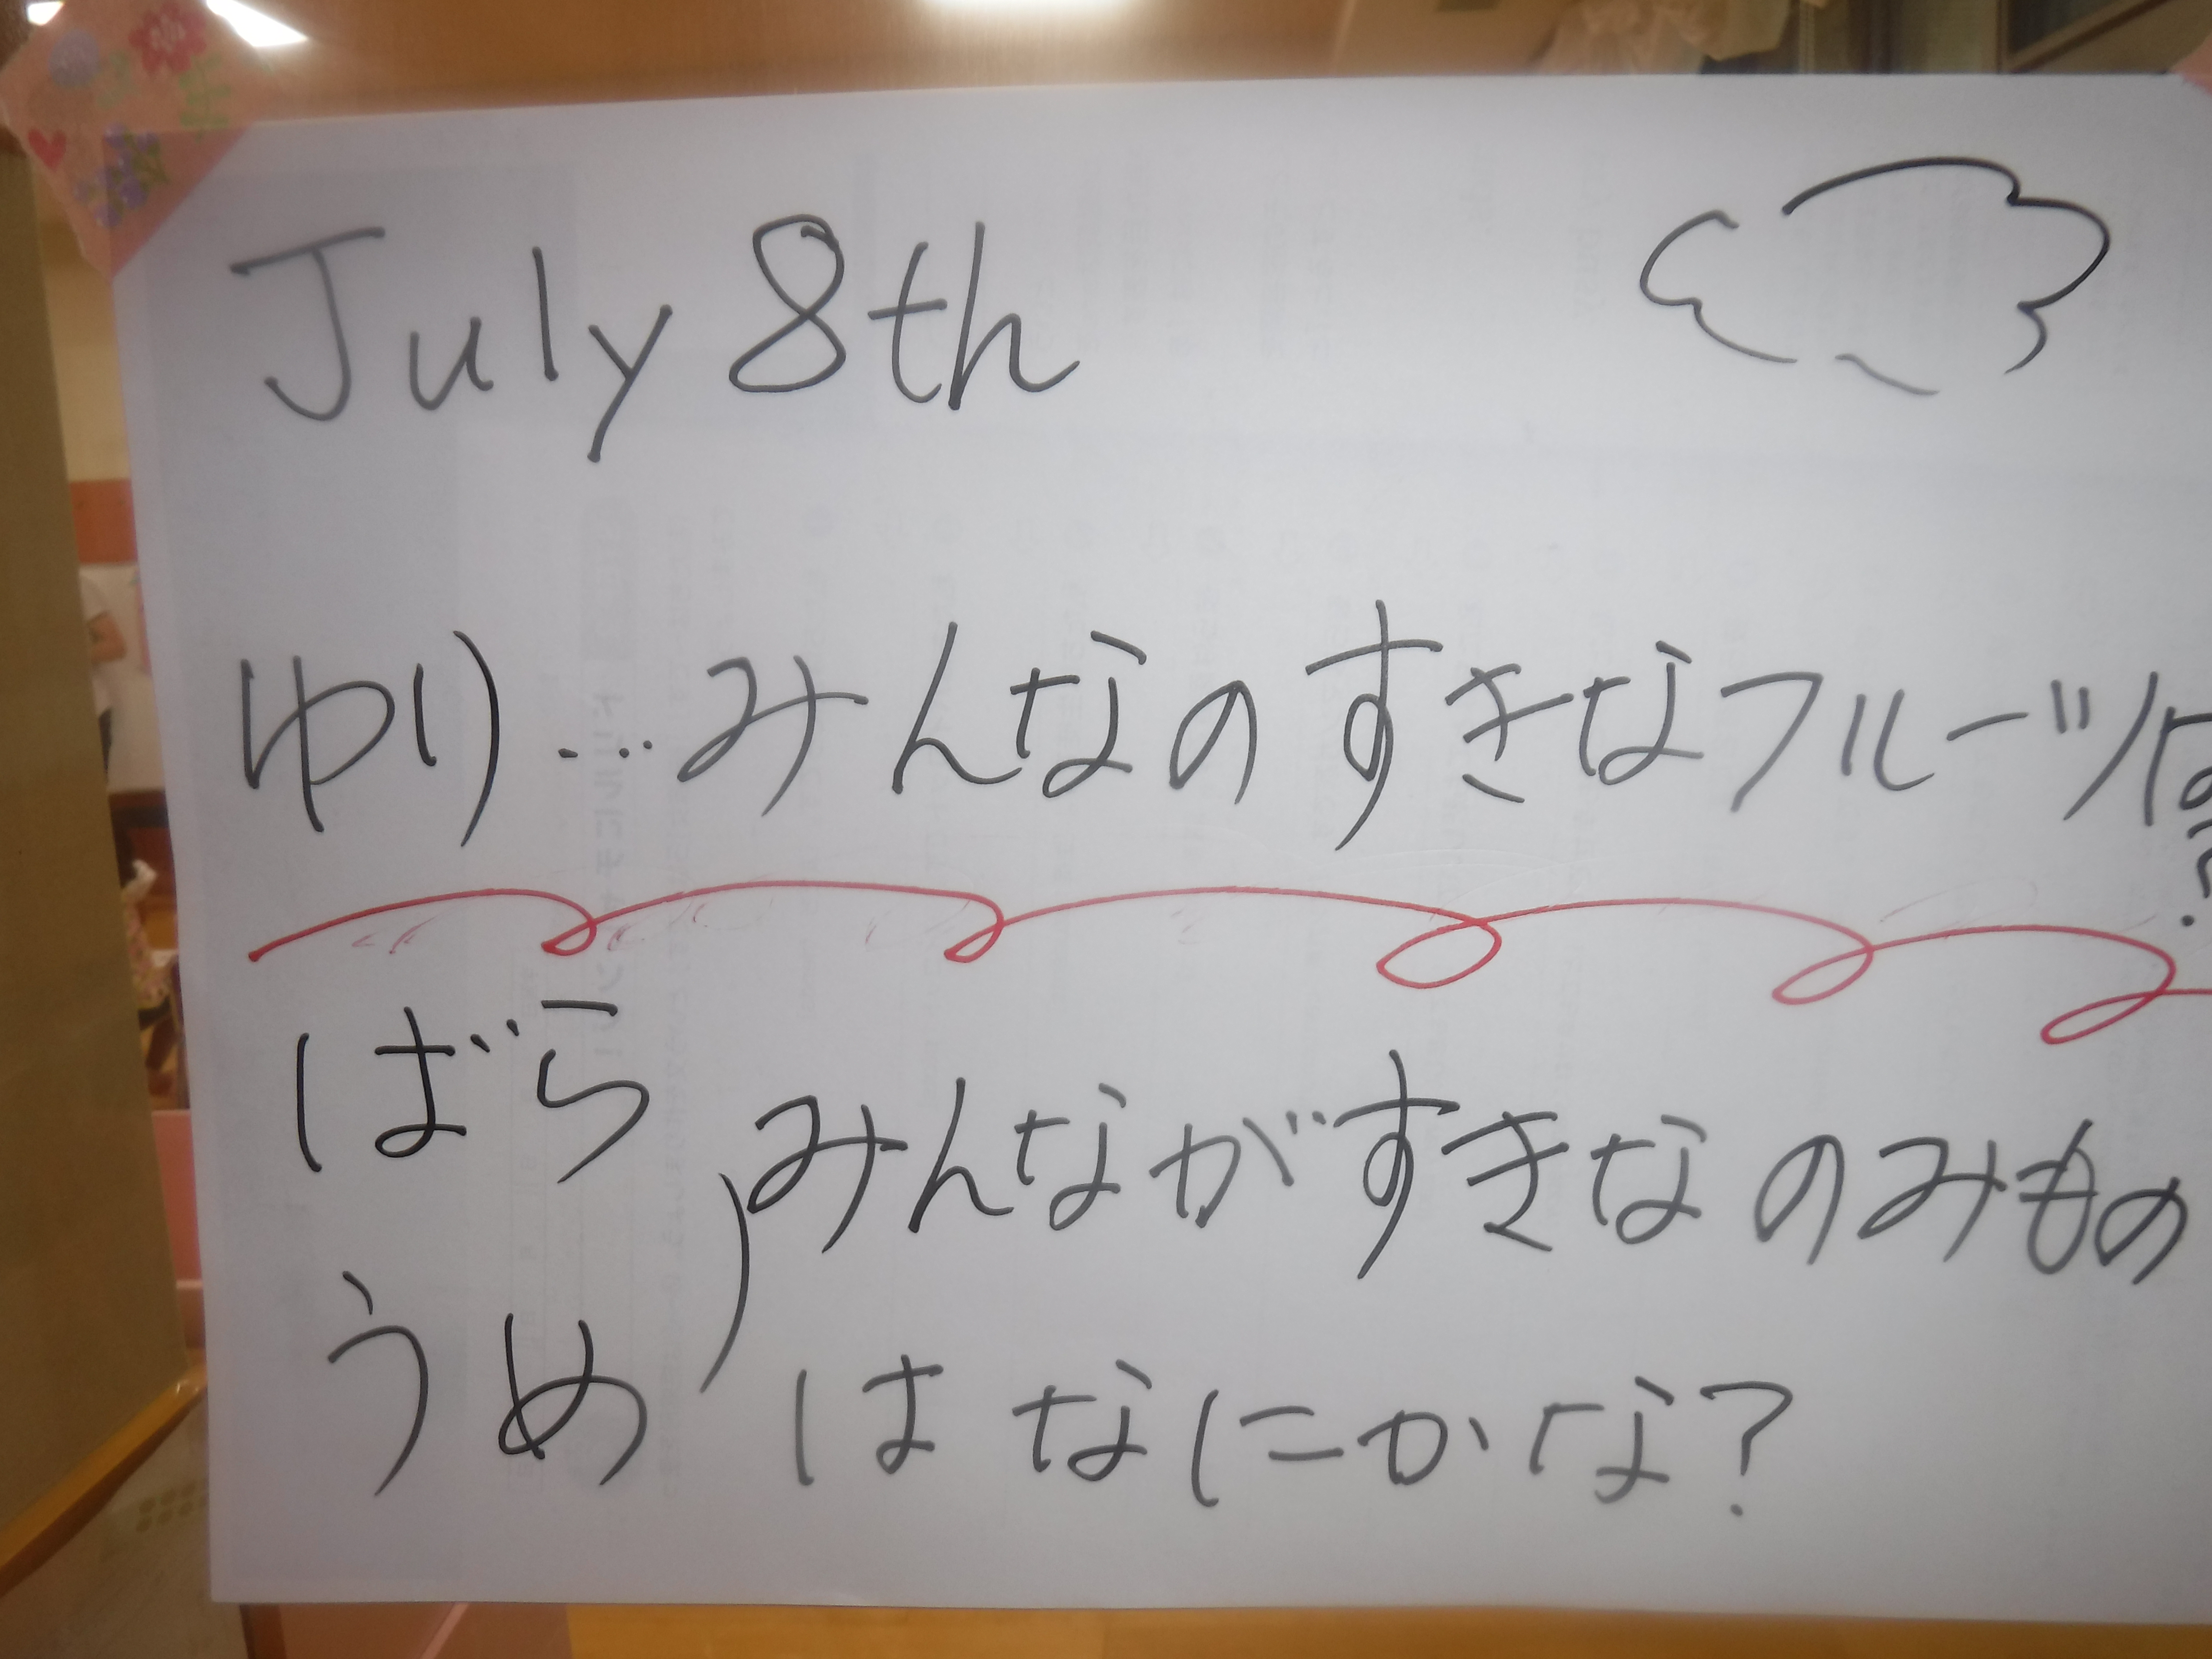 July 8th
ゆり…みんなのすきなフルーツは?
ばら
みんながすきなのみもの
うめ
はなにかな?